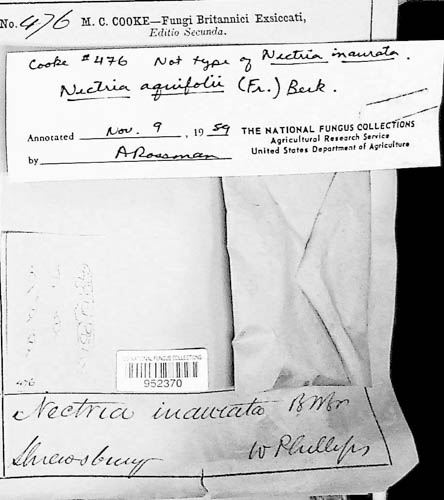 No. 476 M. C. COOKE—Fungi Britannici Exsiccati,
Editio Secunda.
Cooke #476 Not type of Nectria inaurata.
Nectria aquifolii (Fr.) Berk.
Annotated Nov. 9, 1989
by ARossman
THE NATIONAL FUNGUS COLLECTIONS
Agricultural Research Service
United States Department of Agriculture
US NATIONAL FUNGUS COLLECTIONS
952370
476
Nectria inaurata B&Br
Shrewsbury W Phillips